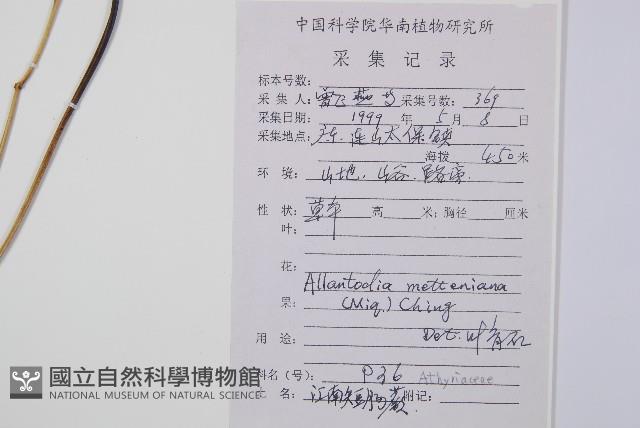 中国科学院华南植物研究所
采 集 记 录
标本号数:
采 集 人: 采集号数: 369
采集日期: 1999 年 5 月 8 日
采集地点: 广东. 连山太保镇
海拨 450 米
环 境: 山地, 山谷. 路旁.
性 状: 草本 高 米; 胸径 厘米
叶:
花:
Allantodia metteniana
果: (Miq.) Ching
用 途: Det.: 叶育石
科名(号): P36 Athyriaceae
名: 附记:
國立自然科學博物館
NATIONAL MUSEUM OF NATURAL SCIENCE